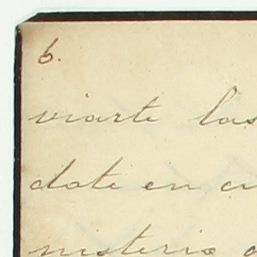 6.
viarte las
date en cu
misterio a